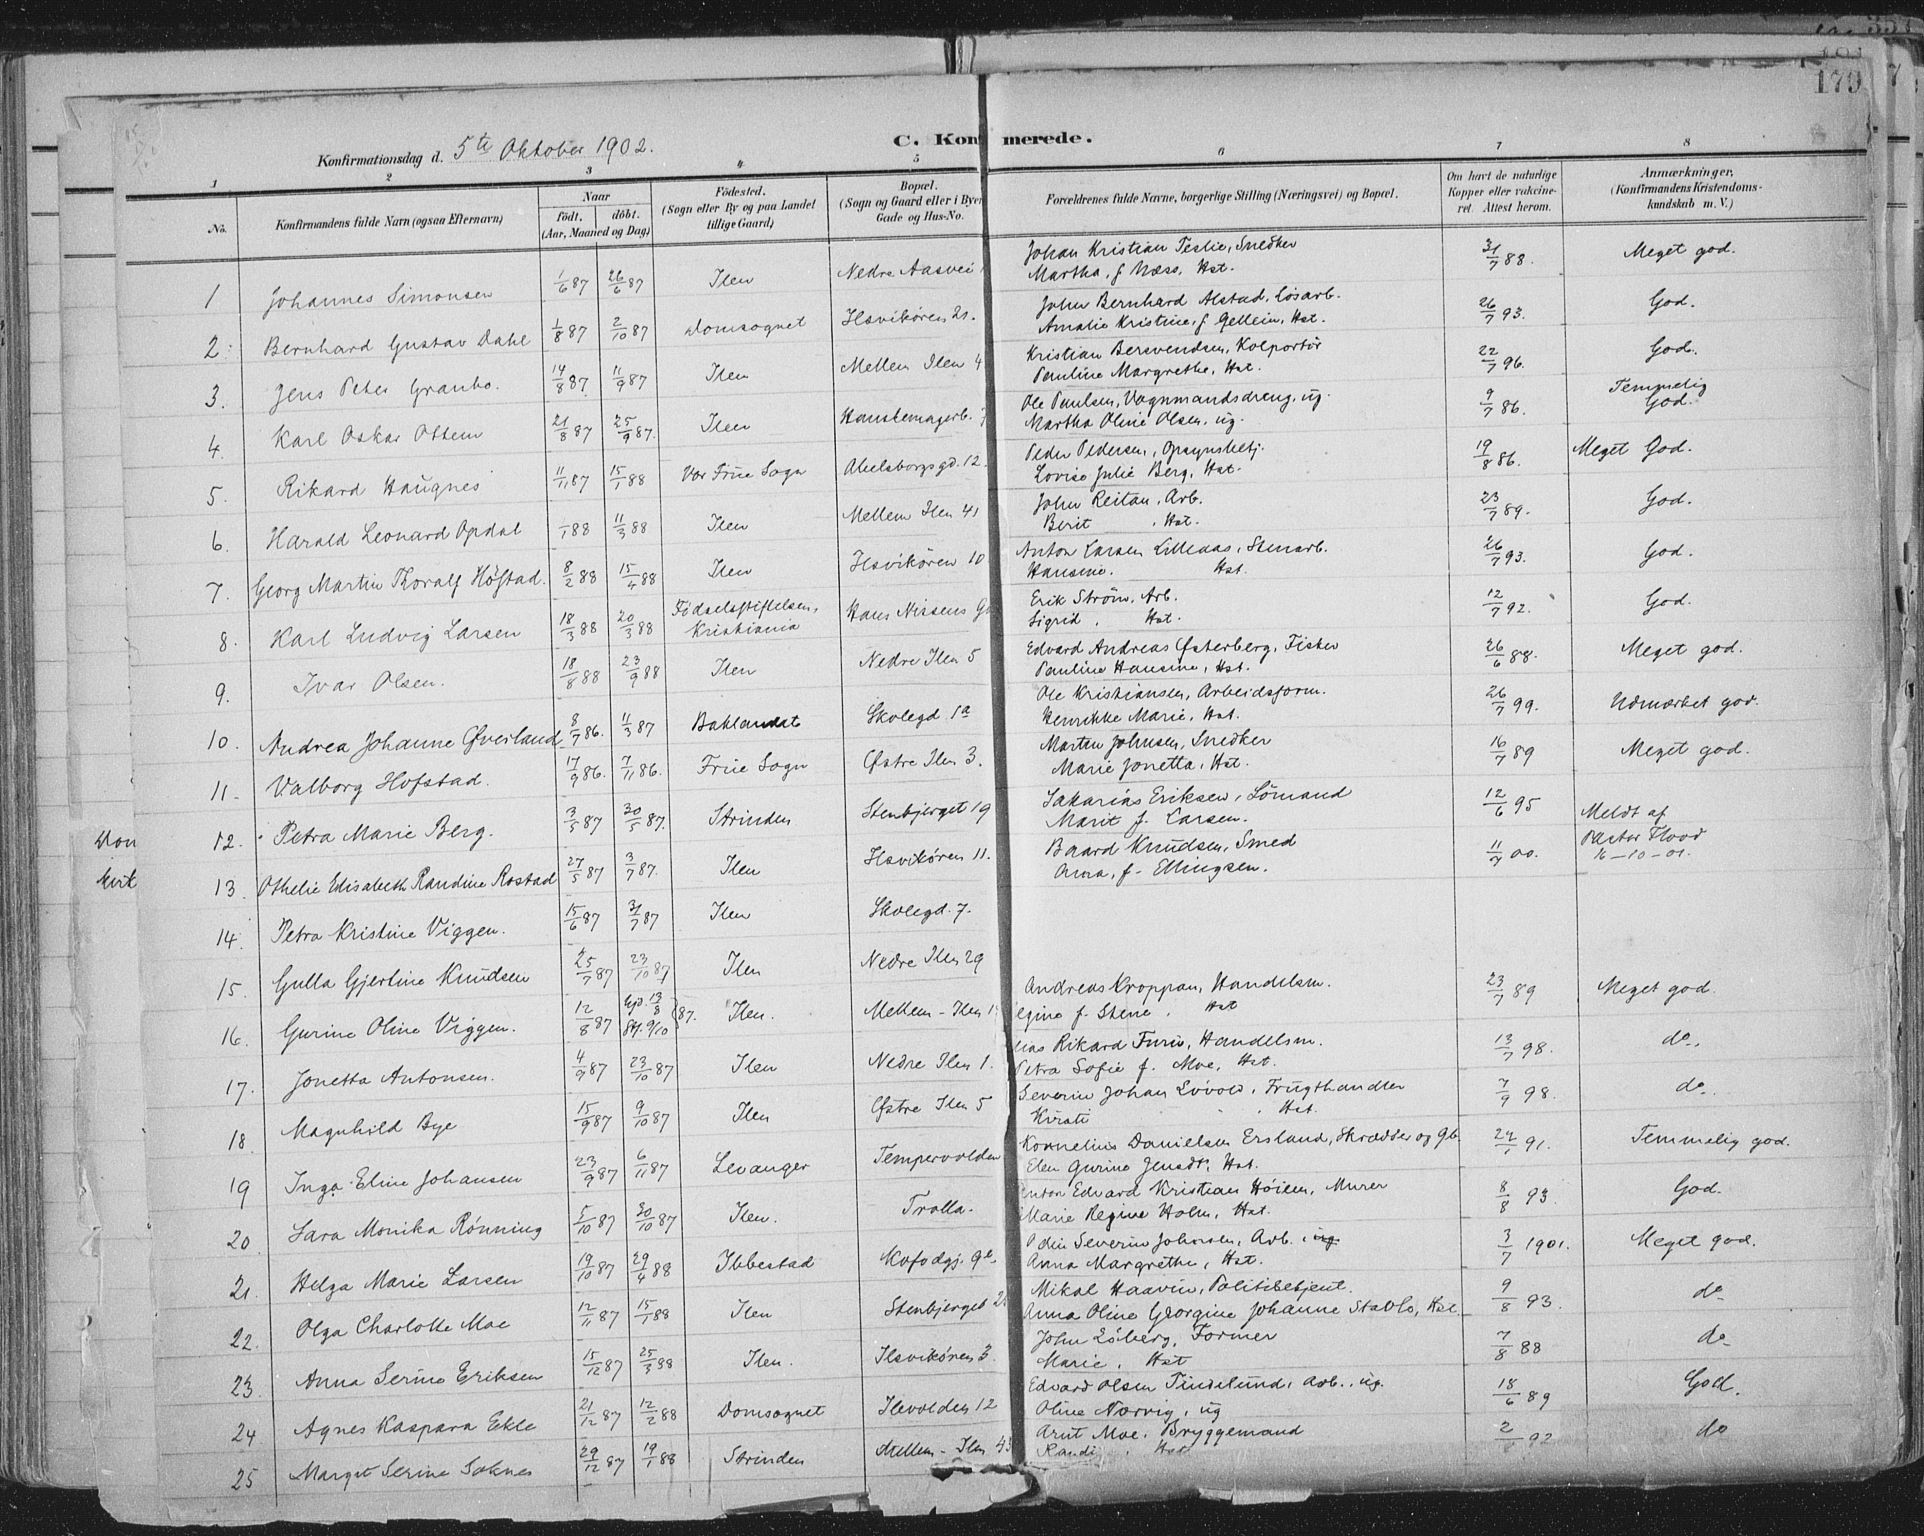 179
C. Kon merede.
Konfirmationsdag d. 5te Oktober 1902.
1 2 3 4 5 6 7 8
No.
Konfirmandens fulde Navn (ogsaa Efternavn)
Naar
født, døbt.
(Aar, Maaned og Dag)
Fødested.
(Sogn eller By og paa Landet
tillige Gaard)
Bopæl.
(Sogn og Gaard eller i Byen
Gade og Hus-No.
Forældrenes fulde Navne, borgerlige Stilling (Næringsvei) og Bopæl.
Om havt de naturlige
Kopper eller vakcine-
ret. Attest herom.
Anmærkninger,
(Konfirmandens Kristendoms-
kundskab m. V.)
1 Johannes Simonsen 1/6 87 26/6 87 Ilen Nedre Aasvei
2. Bernhard Gustav Dahl 1/8 87 2/10 87 Domsognet Ilsvikören 21.
3. Jens Peter Granbo. 14/8 87 11/9 87 Ilen Mellem Ilen 4
4. Karl Oskar Ottem 21/8 87 25/9 87. Ilen
5. Rikard Haugnes 11/11 87 15/1 88 Vor Frue Sogn Abelsborgsgd. 12.
6. Harald Leonard Opdal /1 88 11/3 88 Ilen Mellem Ilen 41
7. Georg Martin Thoralf Höfstad. 8/2 88 15/4 88 Ilen Ilsvikören 10
8. Karl Ludvig Larsen 18/3 88 20/3 88 Födselsstiftelsen, Kristiania Hans Nissens G
9. Ivar Olsen. 18/8 88 23/9 88 Ilen Nedre Ilen 5
10. Andrea Johanne Øverland 8/7 86. 11/3 87 Baklandet Skolegd 1a
11. Valborg Hofstad. 17/9 86. 7/11 86. Frue Sogn Østre Ilen 3.
12. Petra Marie Berg. 3/5 87 30/5 87. Strinden Stenbjerget 19
13. Othelie Elisabeth Randine Rostad 27/5 87 3/7 87. Ilen Ilsvikören 11.
14. Petra Kristine Viggen. 15/6 87 31/7 87 Ilen Skolegd. 7.
15. Gulla Gjertine Knudsen 25/7 87 23/10 87 Ilen Nedre Ilen 29
16. Gurine Oline Viggen. 12/8 87 Hjd. 13/8 Stf. 9/10 87. Ilen. Mellem-Ilen 1
17. Jonetta Antonsen. 4/9 87 23/10 87 Ilen Nedre Ilen 1.
18 Magnhild Bye 15/9 87 9/10 87 Ilen Østre Ilen 5
19 Inga Eline Johansen 23/9 87 6/11 87 Levanger Tempervolden
20 Sara Monika Rönning 5/10 87 30/10 87 Ilen. Trolla.
21. Helga Marie Larsen 19/10 87 29/4 88 Ibbestad Kofodgj. 9
22. Olga Charlotte Moe 12/11 87 15/1 88 Ilen Stenbjerget 2
23. Anna Serine Eriksen 15/12 87 25/3 88 Ilen. Ilsvikören 3.
24 Agnes Kaspara Ekle 21/12 87 12/2 88 Domsognet Ilevolden 12
25 Marget Serine Soknes 29/12 87 19/1 88 Strinden Mellem-Ilen 43
Johan Kristian Teslie, Snedker 31/7 88. Meget god.
Martha, f Næss, Hst.
John Bernhard Alstad, Løsarb. 26/7 93. God.
Amalie Kristine, f Gellein, Hst.
Kristian Bersvendsen, Kolportør 22/7 96. God.
Pauline Margrethe, Hst.
Ole Paulsen, Vognmandsdreng, ug. 9/7 86. Temmelig God.
Martha Oline Olsen, ug.
Peder Pedersen, Opsynsbetj. 19/8 86. Meget God.
Lovise Julie Berg, Hst.
John Reitan, Arb. 23/7 89. God.
Berit, Hst.
Anton Larsen Lilleaas, Stenarb. 26/7 93. God.
Hansine. Hst.
Erik Ström, Arb. 12/7 92. God.
Sigrid, Hst.
Edvard Andreas Østerberg, Fisker 26/6 88. Meget god.
Pauline Hansine, Hst.
Ole Kristiansen, Arbeidsform. 26/7 99. Udmærket god.
Henrikke Marie, Hst.
Morten Johnsen, Snedker 16/7 89 Meget god.
Marie Jonetta, Hst.
Sakarias Eriksen, Sömand 12/6 95
Marit f. Larsen.
Meldt af
Pastor Flood
16-10-01.
Baard Knudsen, Smed 11/7 00.
Anna, f. Ellingsen.
Andreas Kroppan, Handelsm. 23/7 89 Meget god.
egine f. Stene, Hst
ias Rikard Furu, Handelsm. 13/7 98. do.
Petra Sofie f. Moe, Hst.
Severin Johan Lövold, Frugthandler 7/9 98. do.
Kirsti " Hst.
Kornelius Danielsen Ersland, Skrædder og gb. 24/1 91. Temmelig god.
Elen Gurine Jensdt, Hst.
nton Edvard Kristian Höien, Murer 8/8 93. God.
Marie Regine Holm, Hst.
Odin Severin Johnsen, Arb. ug 3/7 1901. Meget god.
Anna Margrethe, Hst.
Mikal Haavin, Politibetjent. 9/8 93. do
Anna Oline Georgine Johanne Stavlo, Hst.
John Söberg, Former 7/8 88 do
Marie, Hst
Edvard Olsen Tindlund, Arb., ug. 18/6 89 God.
Oline Norvig, ug
Arnt Moe, Bryggemand 2/ 92 do
Randi, Hst